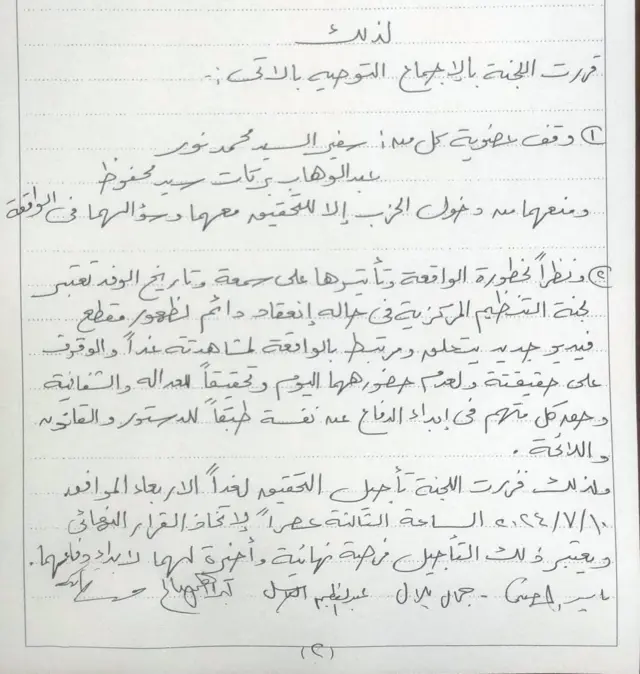 لذلك
قررت اللجنة بالإجماع التوصيه بالاتى :-
① وقف عضوية كل من : سفير السيد محمد نور
عبدالوهاب بركات سيد محفوظ
ومنعهما من دخول الحزب إلا للتحقيق معهما وسؤالهما فى الواقعة
② ونظراً لخطورة الواقعة وتأثيرها على سمعة وتاريخ الوفد تعتبر
لجنة التنظيم المركزية فى حاله إنعقاد دائم لظهور مقطع
فيديو جديد يتعلق ومرتبط بالواقعة لمشاهدته غداً والوقوف
على حقيقتة ولعدم حضورهما اليوم وتحقيقاً للعداله والشفافية
وحق كل متهم فى إبداء الدفاع عن نفسة طبقاً للدستور والقانون
واللائحة .
ولذلك قررت اللجنة تأجيل التحقيق لغداً الاربعاء الموافق
٢٠٢٤/٧/١٠ الساعة الثالثة عصراً لإتخاذ القرار النهائي
ويعتبر ذلك التأجيل فرصة نهائية وأخيرة لهما لابداء دفاعهما .
ياسر - جمال بلال عبدالعظيم
(٢)